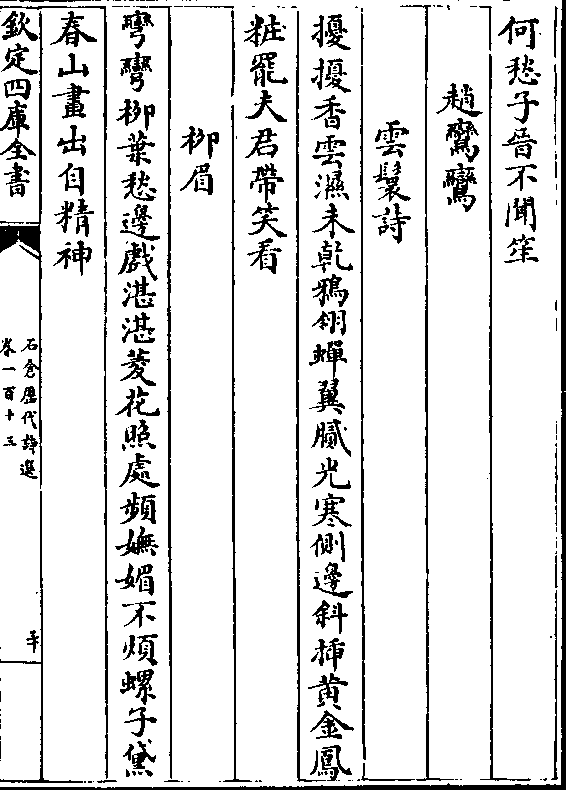 何愁子晉不聞笙
趙鸞鸞
雲鬟詩
擾擾香雲濕未乾鴉翎蟬翼膩光寒側邊斜揷黄金鳳
粧罷夫君帶笑看
柳眉
彎彎柳葉愁邊戲湛湛菱花照處頻嫵媚不煩螺子黛
春山畫出自精神
欽定四庫全書
石倉歴代詩選
卷一百十三